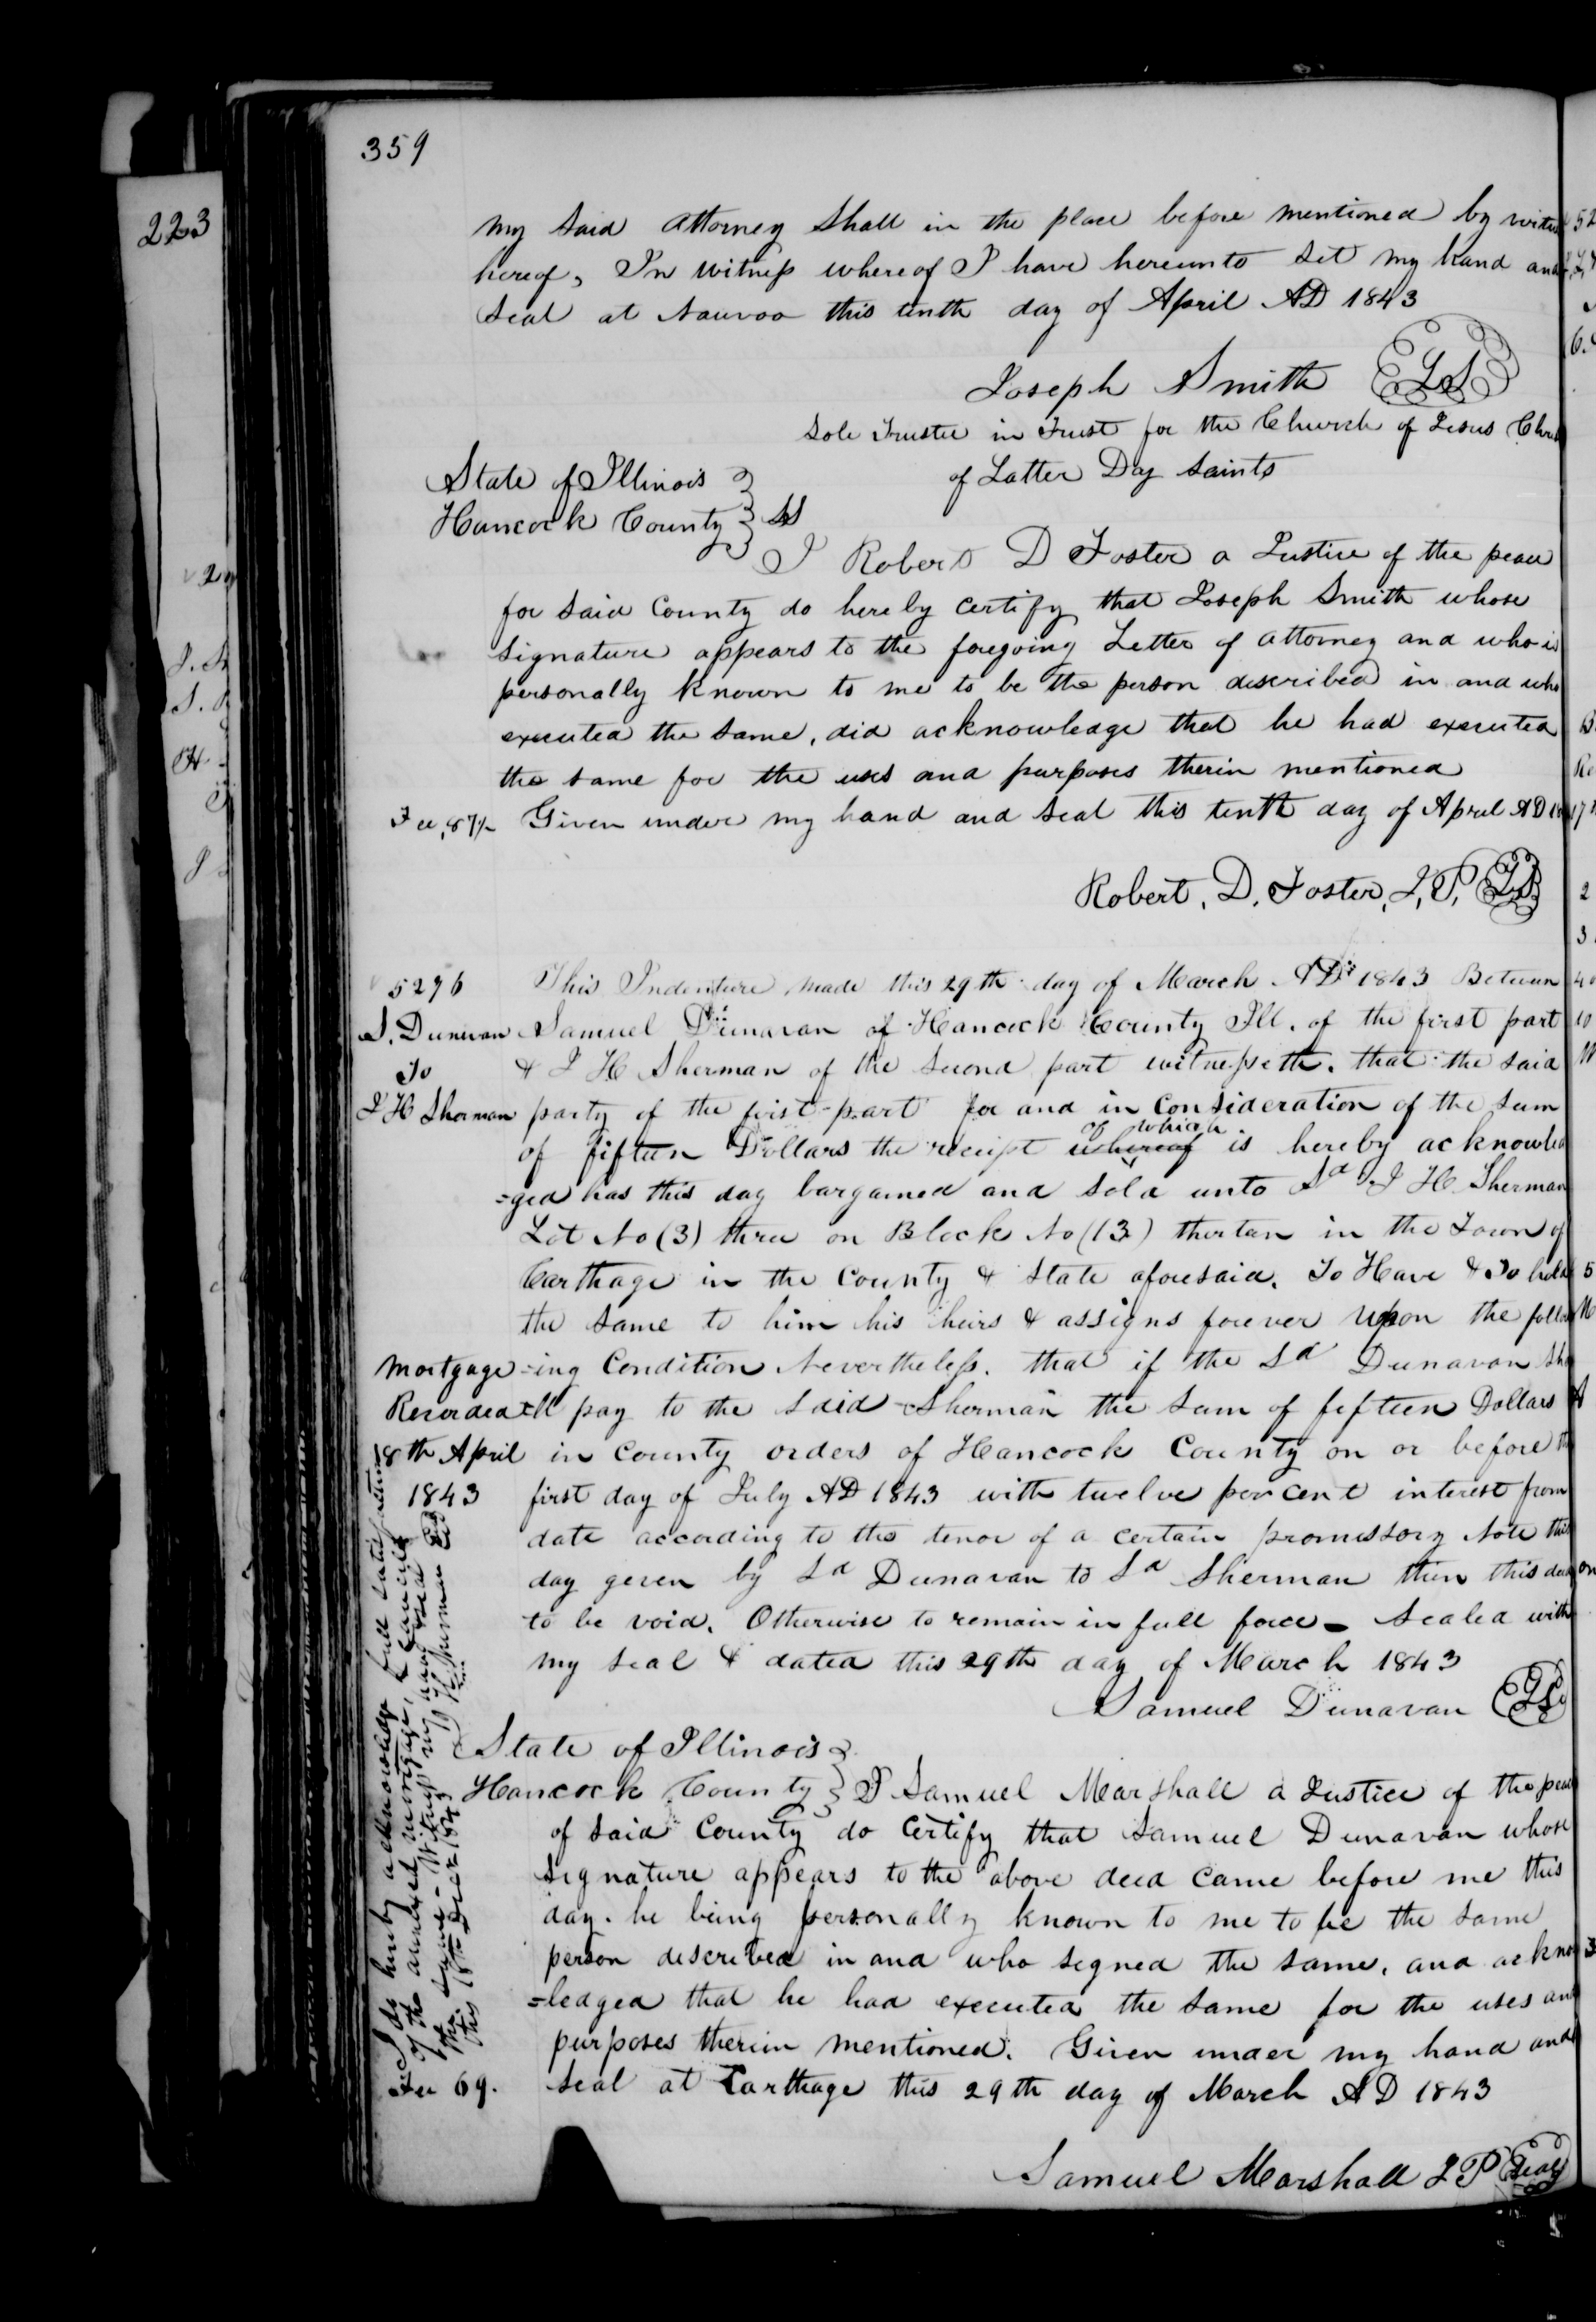 359
my said Attorney Shall in the place before mentioned by virtue
hereof, In witness whereof I have hereunto Set my hand and
Seal at Nauvoo this tenth day of April AD 1843
Joseph Smith LS
Sole Trustee in Trust for the Church of Jesus Christ
of Latter Day Saints
State of Illinois
Hancock County } SS
I Robert D Foster a Justice of the peace
for said County do hereby certify that Joseph Smith whose
signature appears to the foregoing Letter of attorney and who is
personally known to me to be the person described in and who
executed the same, did acknowledge that he had executed
the same for the uses and purposes therin mentioned
Fee ,87½ Given under my hand and seal this tenth day of April AD
Robert, D. Foster, J, P, LS
5276 This Indenture made this 29th day of March AD 1843 Between
S. Dunavan Samuel Dunavan of Hancock County Ill. of the first part
To & J H Sherman of the second part witnesseth. that the said
J H Sherman party of the first part for and in Consideration of the Sum
of which
of fifteen Dollars the receipt whereof is hereby acknowled
=ged has this day bargained and sold unto Sd J H Sherman
Lot No (3) three on Block No (13) thertan in the Town of
Carthage in the County & State aforesaid. To Have & To hold
the same to him his heirs & assigns forever upon the follow
Mortgage =ing Condition Nevertheless. that if the Sd Dunavan Sha
Recorded =ll pay to the said Sherman the Sum of fifteen Dollars
18th April in County orders of Hancock County on or before the
1843 first day of July AD 1843 with twelve per cent interest from
date according to the tenor of a certain promissory Note this
day given by Sd Dunavan to Sd Sherman then this deed
to be void. Otherwise to remain in full force - Sealed with
my seal & dated this 29th day of March 1843
Samuel Dunavan LS
State of Illinois
Hancock County } I Samuel Marshall a Justice of the peace
of said County do Certify that Samuel Dunavan whose
signature appears to the above deed came before me this
day. he being personally known to me to be the same
person described in and who signed the same. and acknow
=ledged that he had executed the same for the uses and
purposes therin mentioned. Given under my hand and
Fee 69. Seal at Carthage this 29th day of March AD 1843
Samuel Marshall J P Seal
I do hereby acknowledge full satisfaction
of the annexed mortgage,
the same - Witness my hand and seal
this 18th 1843 J H Sherman
223